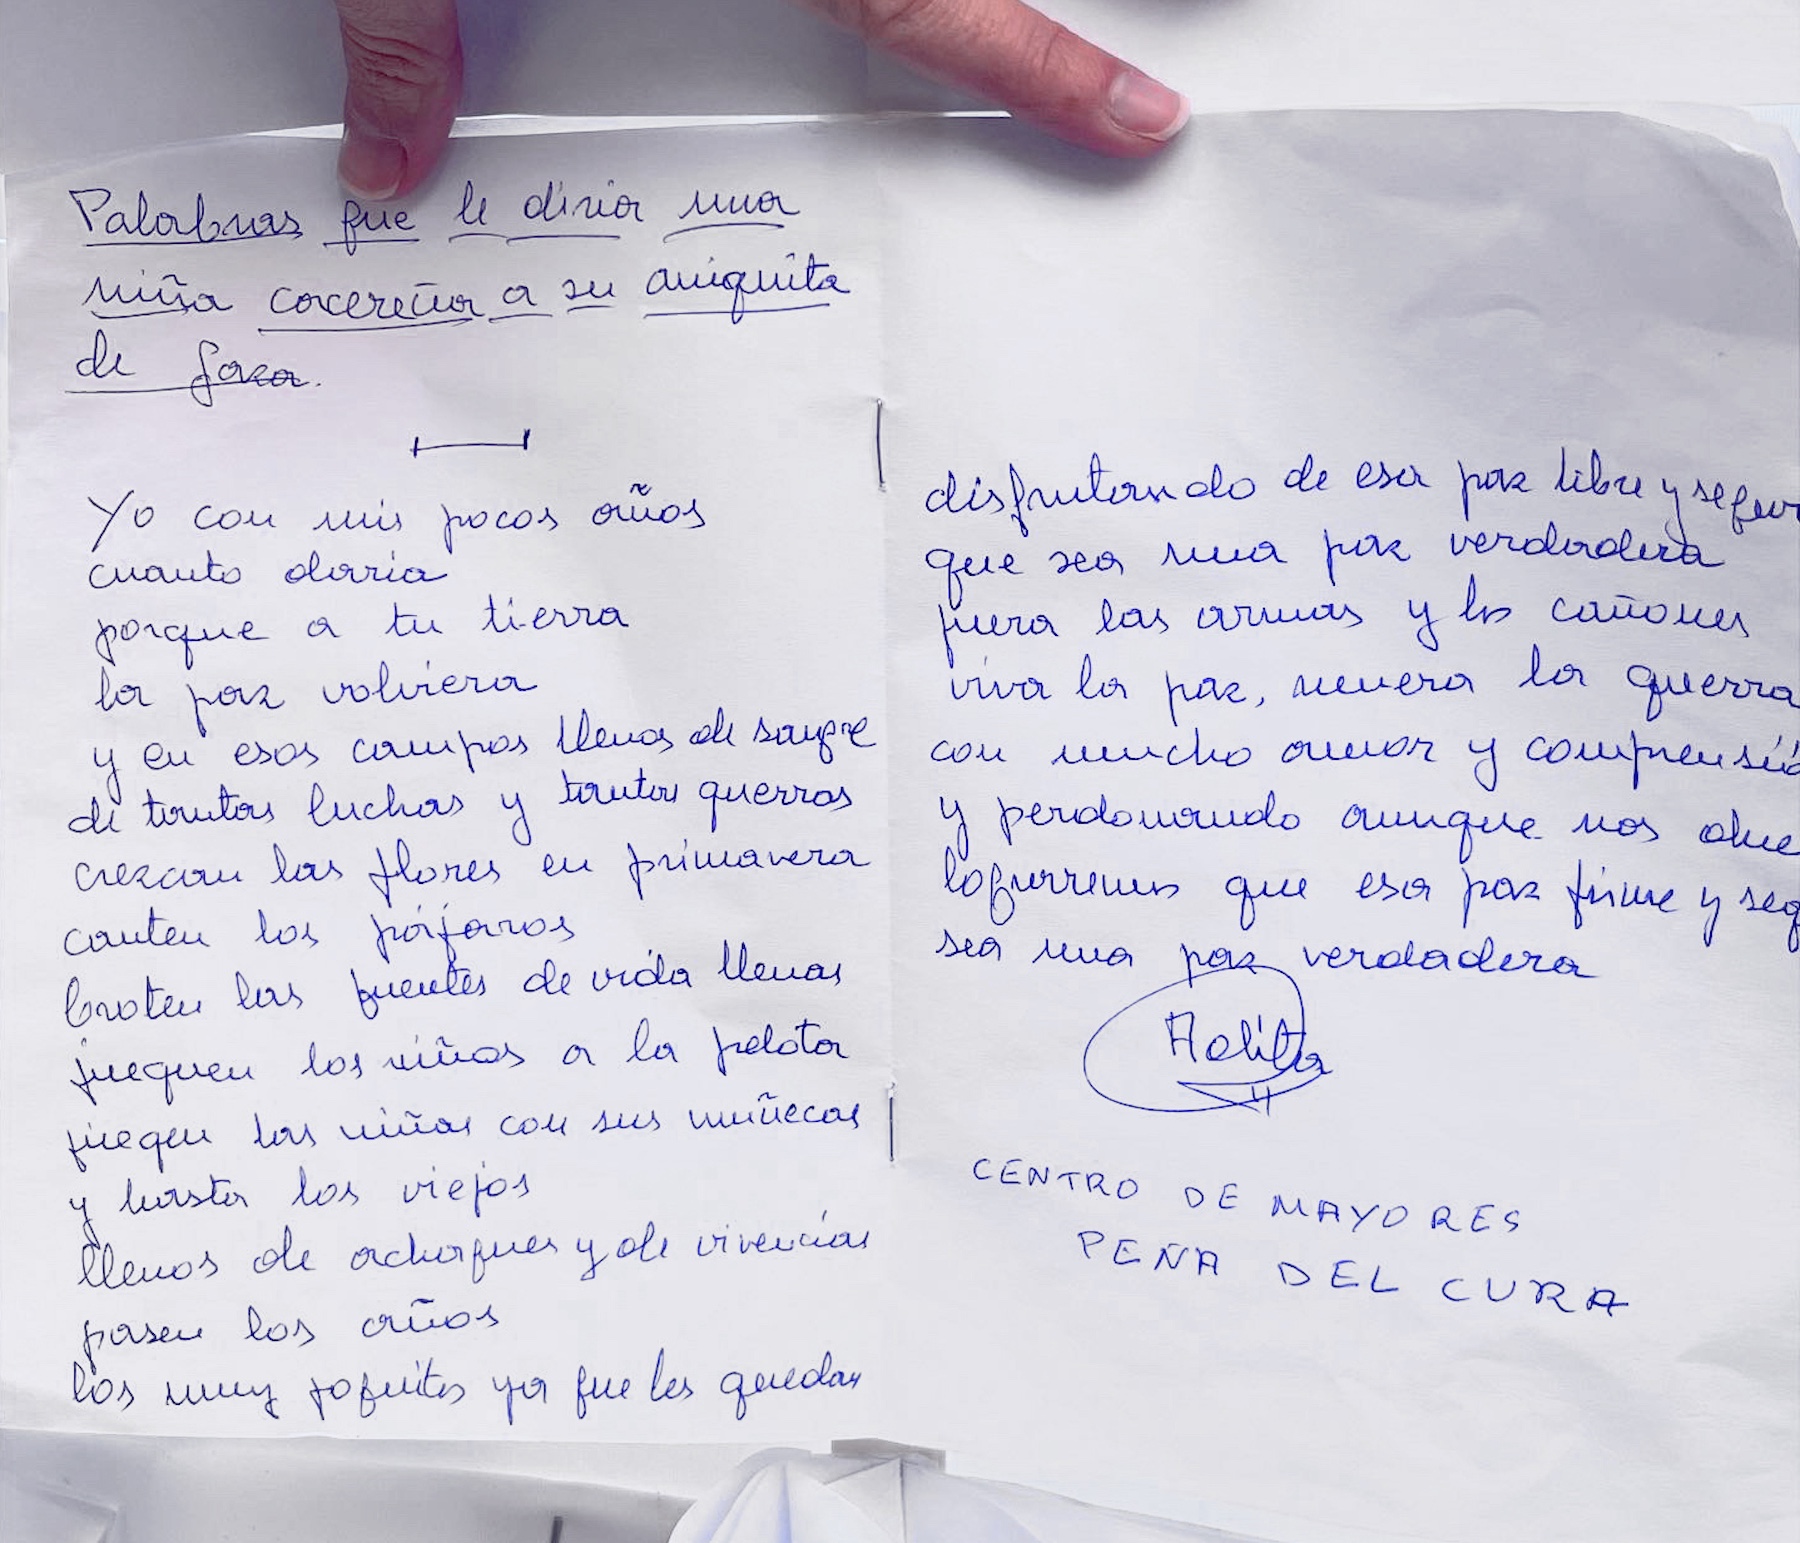 Palabras que le diria una
niña cacereña a su amiguita
de Gaza.
Yo con mis pocos años
cuanto daria
porque a tu tierra
la paz volviera
y en esos campos llenos de sangre
de tantas luchas y tantas guerras
crezcan las flores en primavera
canten los pájaros
broten las fuentes de vida llenas
jueguen los niños a la pelota
juegen las niñas con sus muñecas
y hasta los viejos
llenos de achaques y de vivencias
pasen los años
los muy poquitos ya que les quedan
disfrutando de esa paz libre y segur
que sea una paz verdadera
fuera las armas y los cañones
viva la paz, muera la guerra
con mucho amor y comprensió
y perdonando aunque nos due
logurremos que esa paz firme y seg
sea una paz verdadera
CENTRO DE MAYORES
PEÑA DEL CURA